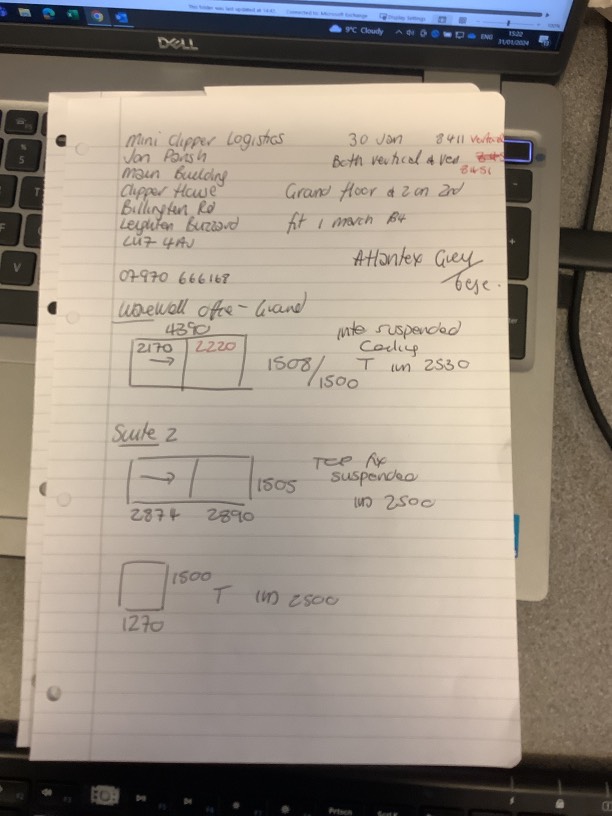 DELL
9°C Cloudy
ENG
15:22
31/01/2024
Mini Clipper Logistics 30 Jan 8411 Vertical
Jon Parish Both vertical & ven
Main Building 8451
Clipper House Grand floor & 2 on 2nd
Billington Rd
Leighton Buzzard fit 1 march
LU7 4AJ
Atlantex Grey
bege.
07970 666168
office - Grand
4390
2170 2220
1508/1500
into suspended
T un 2530
Suite 2
Top fix
suspended
1505
un 2500
2874 2890
1500
T un 2500
1270